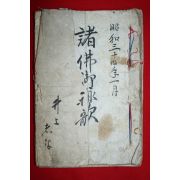 昭和三十九年一月
諸佛御詠歌
井上